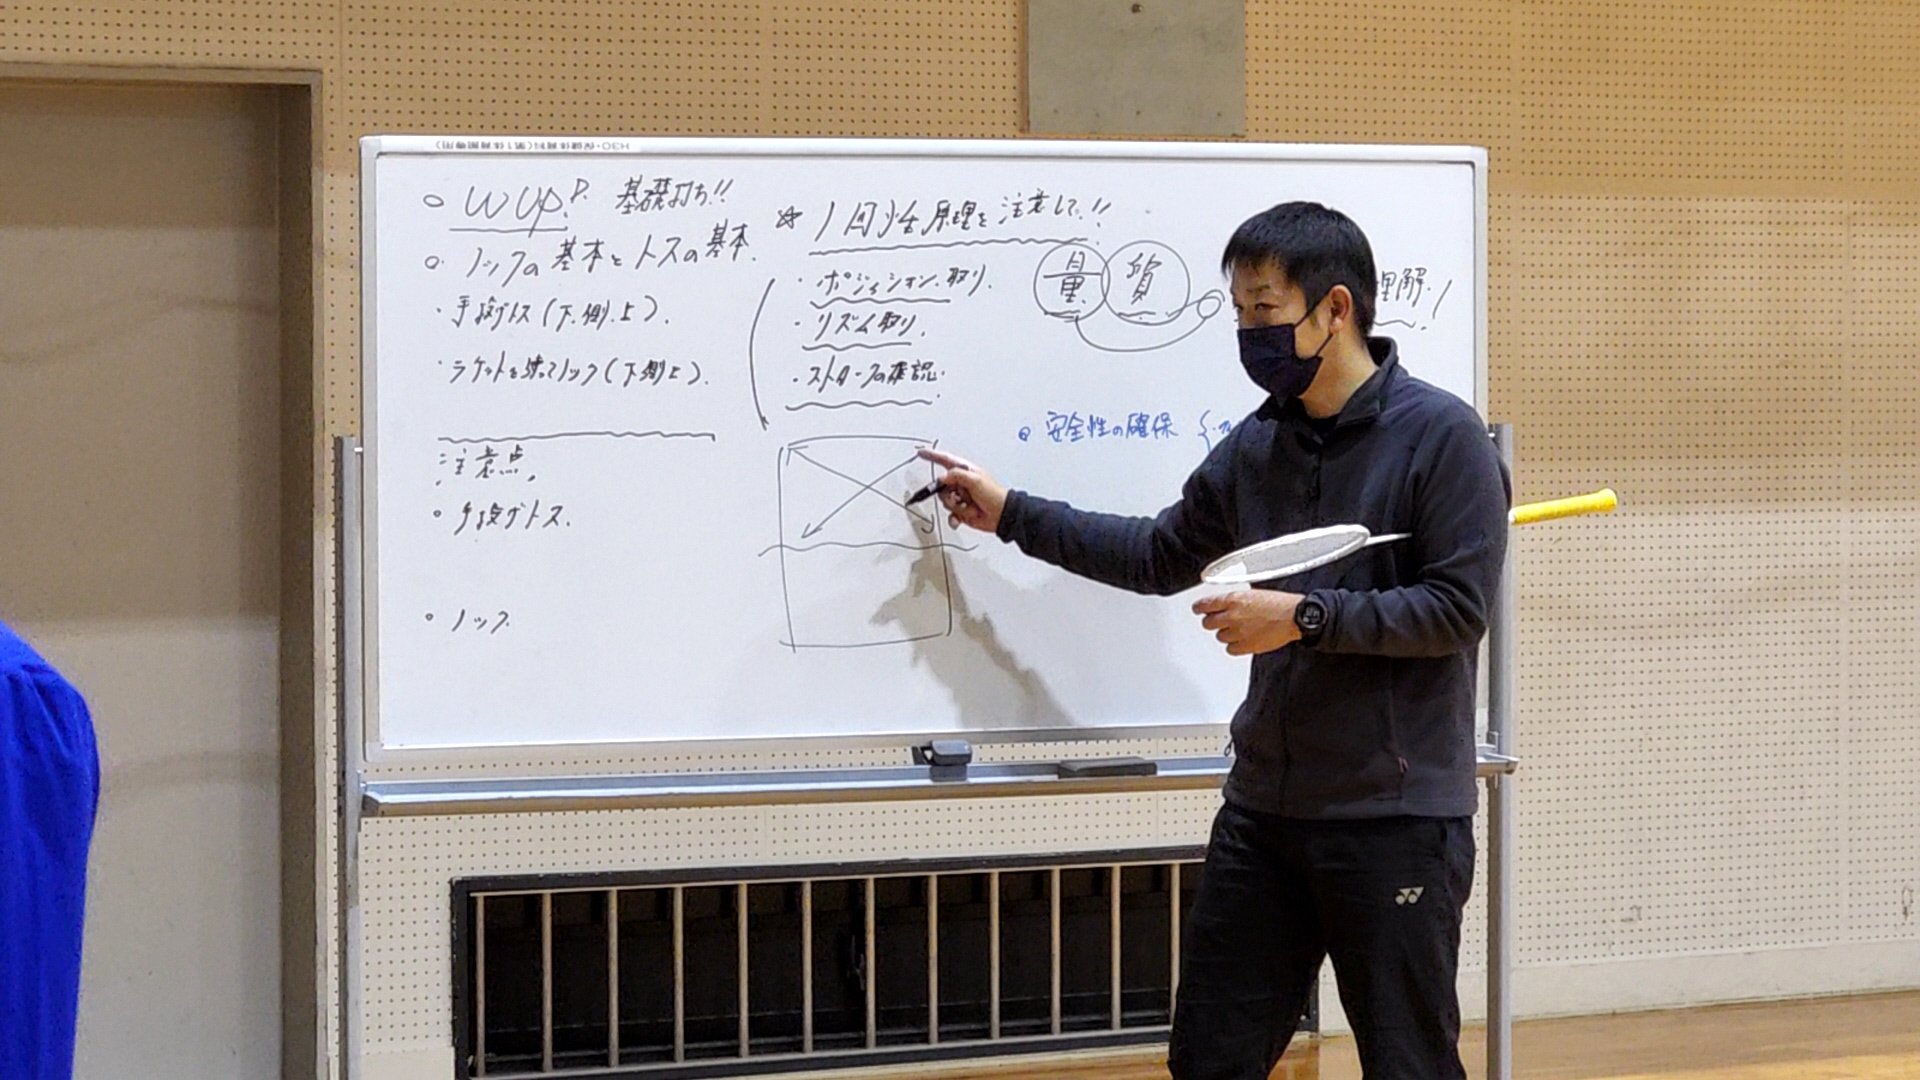 H30・保健体育科(第1体育館専用)
○ W UP. 基礎打ち!!
○ ノックの基本とトスの基本.
・手投げトス(下.側.上).
・ラケットを使ってノック(下側上).
注意点.
○ 手投げトス.
○ ノック.
☆ 1回性原理を注意して.!!
・ポジィション.取り.
・リズム取り.
・ストロークの確認.
量 質
理解.!
◎ 安全性の確保 {